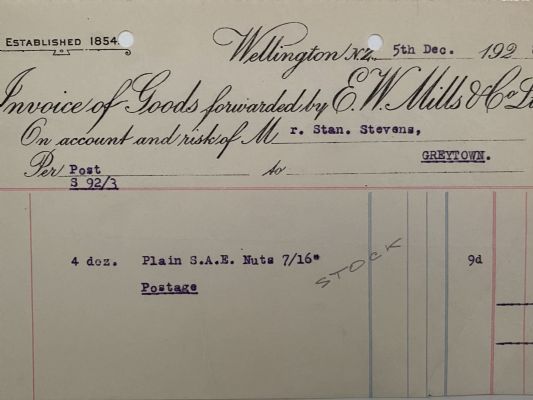 ESTABLISHED 1854.
Wellington N.Z. 5th Dec. 192
Invoice of Goods forwarded by E.W. Mills & Co
On account and risk of Mr. Stan. Stevens,
GREYTOWN.
Per Post to
S 92/3
4 doz. Plain S.A.E. Nuts 7/16" 9d
STOCK
Postage